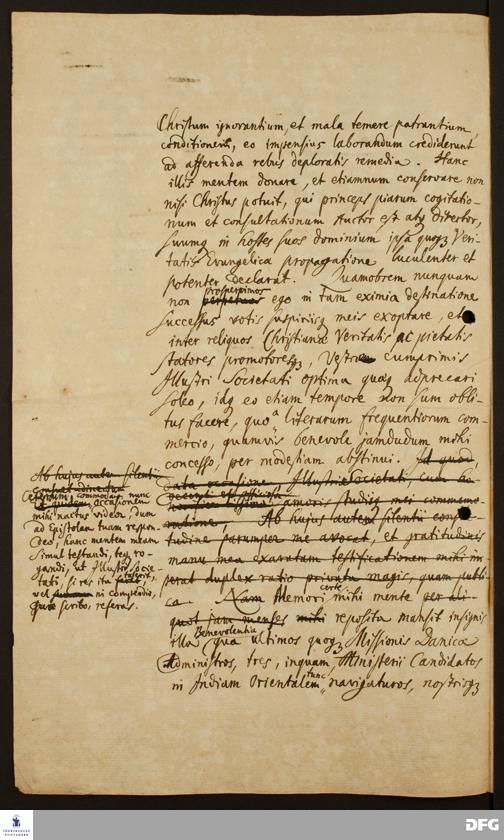 Christum ignorantium, et mala temere patrantium,
conditionem, eo impensius laborandum crediderunt
ad afferenda rebus deploratis remedia. Hanc
illis mentem donare, et etiamnum conservare non
nisi Christus potuit, qui princeps piarum cogitatio-
num et consultationum Auctor est atq; Director,
suumq; in hostes suos dominium ipsâ quoq; Veri-
tatis Evangelicæ propagatione luculenter et
potenter declarat. Quamobrem nunquam
prosperrimos
non perpetuos ego in tam eximia destinatione
successus votis suspiriisq; meis exoptare, et
inter reliquos Christianæ Veritatis ac pietatis
statores promotoresq;, Vestræ cumprimis
Illustri Societati optima quæq; adprecari
soleo, idq; eo etiam tempore non sum obli-
tus facere, quo a literarum frequentiorum com-
mercio, quamvis benevole jamdudum mihi
concesso, per modestiam abstinui. Id quod,
data occasione, Illustri Societati, cum
amoris studiiq; mei commemo-
ratione, Ab hujus autem silentii consue-
tudine parumper me avocat, et gratitudinis
manu mea exaratam testificationem mihi im-
perat duplex ratio privata magis, quam publi-
ca. Nam Memori certe mihi mente per ali-
quot jam menses mihi reposita mansit insignis
illa Benevolentia qua ultimos quoq; Missionis Danicæ
Administros, tres, inquam, Ministerii Candidatos
in Indiam Orientalem tunc navigaturos, nostrisq;
Ab hujus autem silentii
commodam nunc
occasionem
mihi nactus videor, dum
ad Epistolam tuam respon-
deo, hanc mentem meam
simul testandi, teq; ro-
gandi, ut Illustri Socie-
tati, si res ita tulerit,
vel in compendio,
quæ scribo, referas.
FRANCKESCHE
STIFTUNGEN
DFG